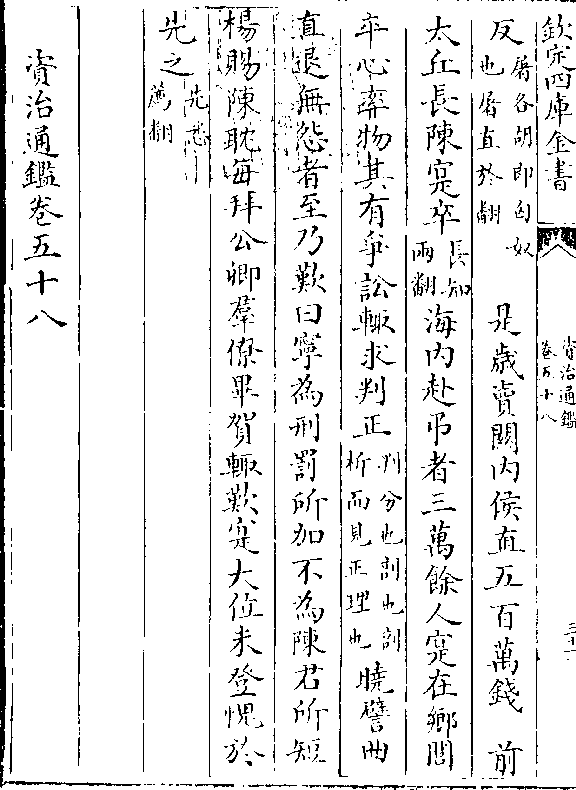 欽定四庫全書
資治通鑑
卷五十八
三十一
反屠各胡即匈奴也屠直於翻　是歲賣關內侯直五百萬錢　前
太丘長陳寔卒長知兩翻海內赴弔者三萬餘人寔在鄉閭
平心率物其有爭訟輒求判正判分也剖也剖析而見正理也曉譬曲
直退無怨者至乃歎曰寧為刑罰所加不為陳君所短
楊賜陳耽每拜公卿羣僚畢賀輒歎寔大位未登愧於
先之先悉薦翻
資治通鑑卷五十八